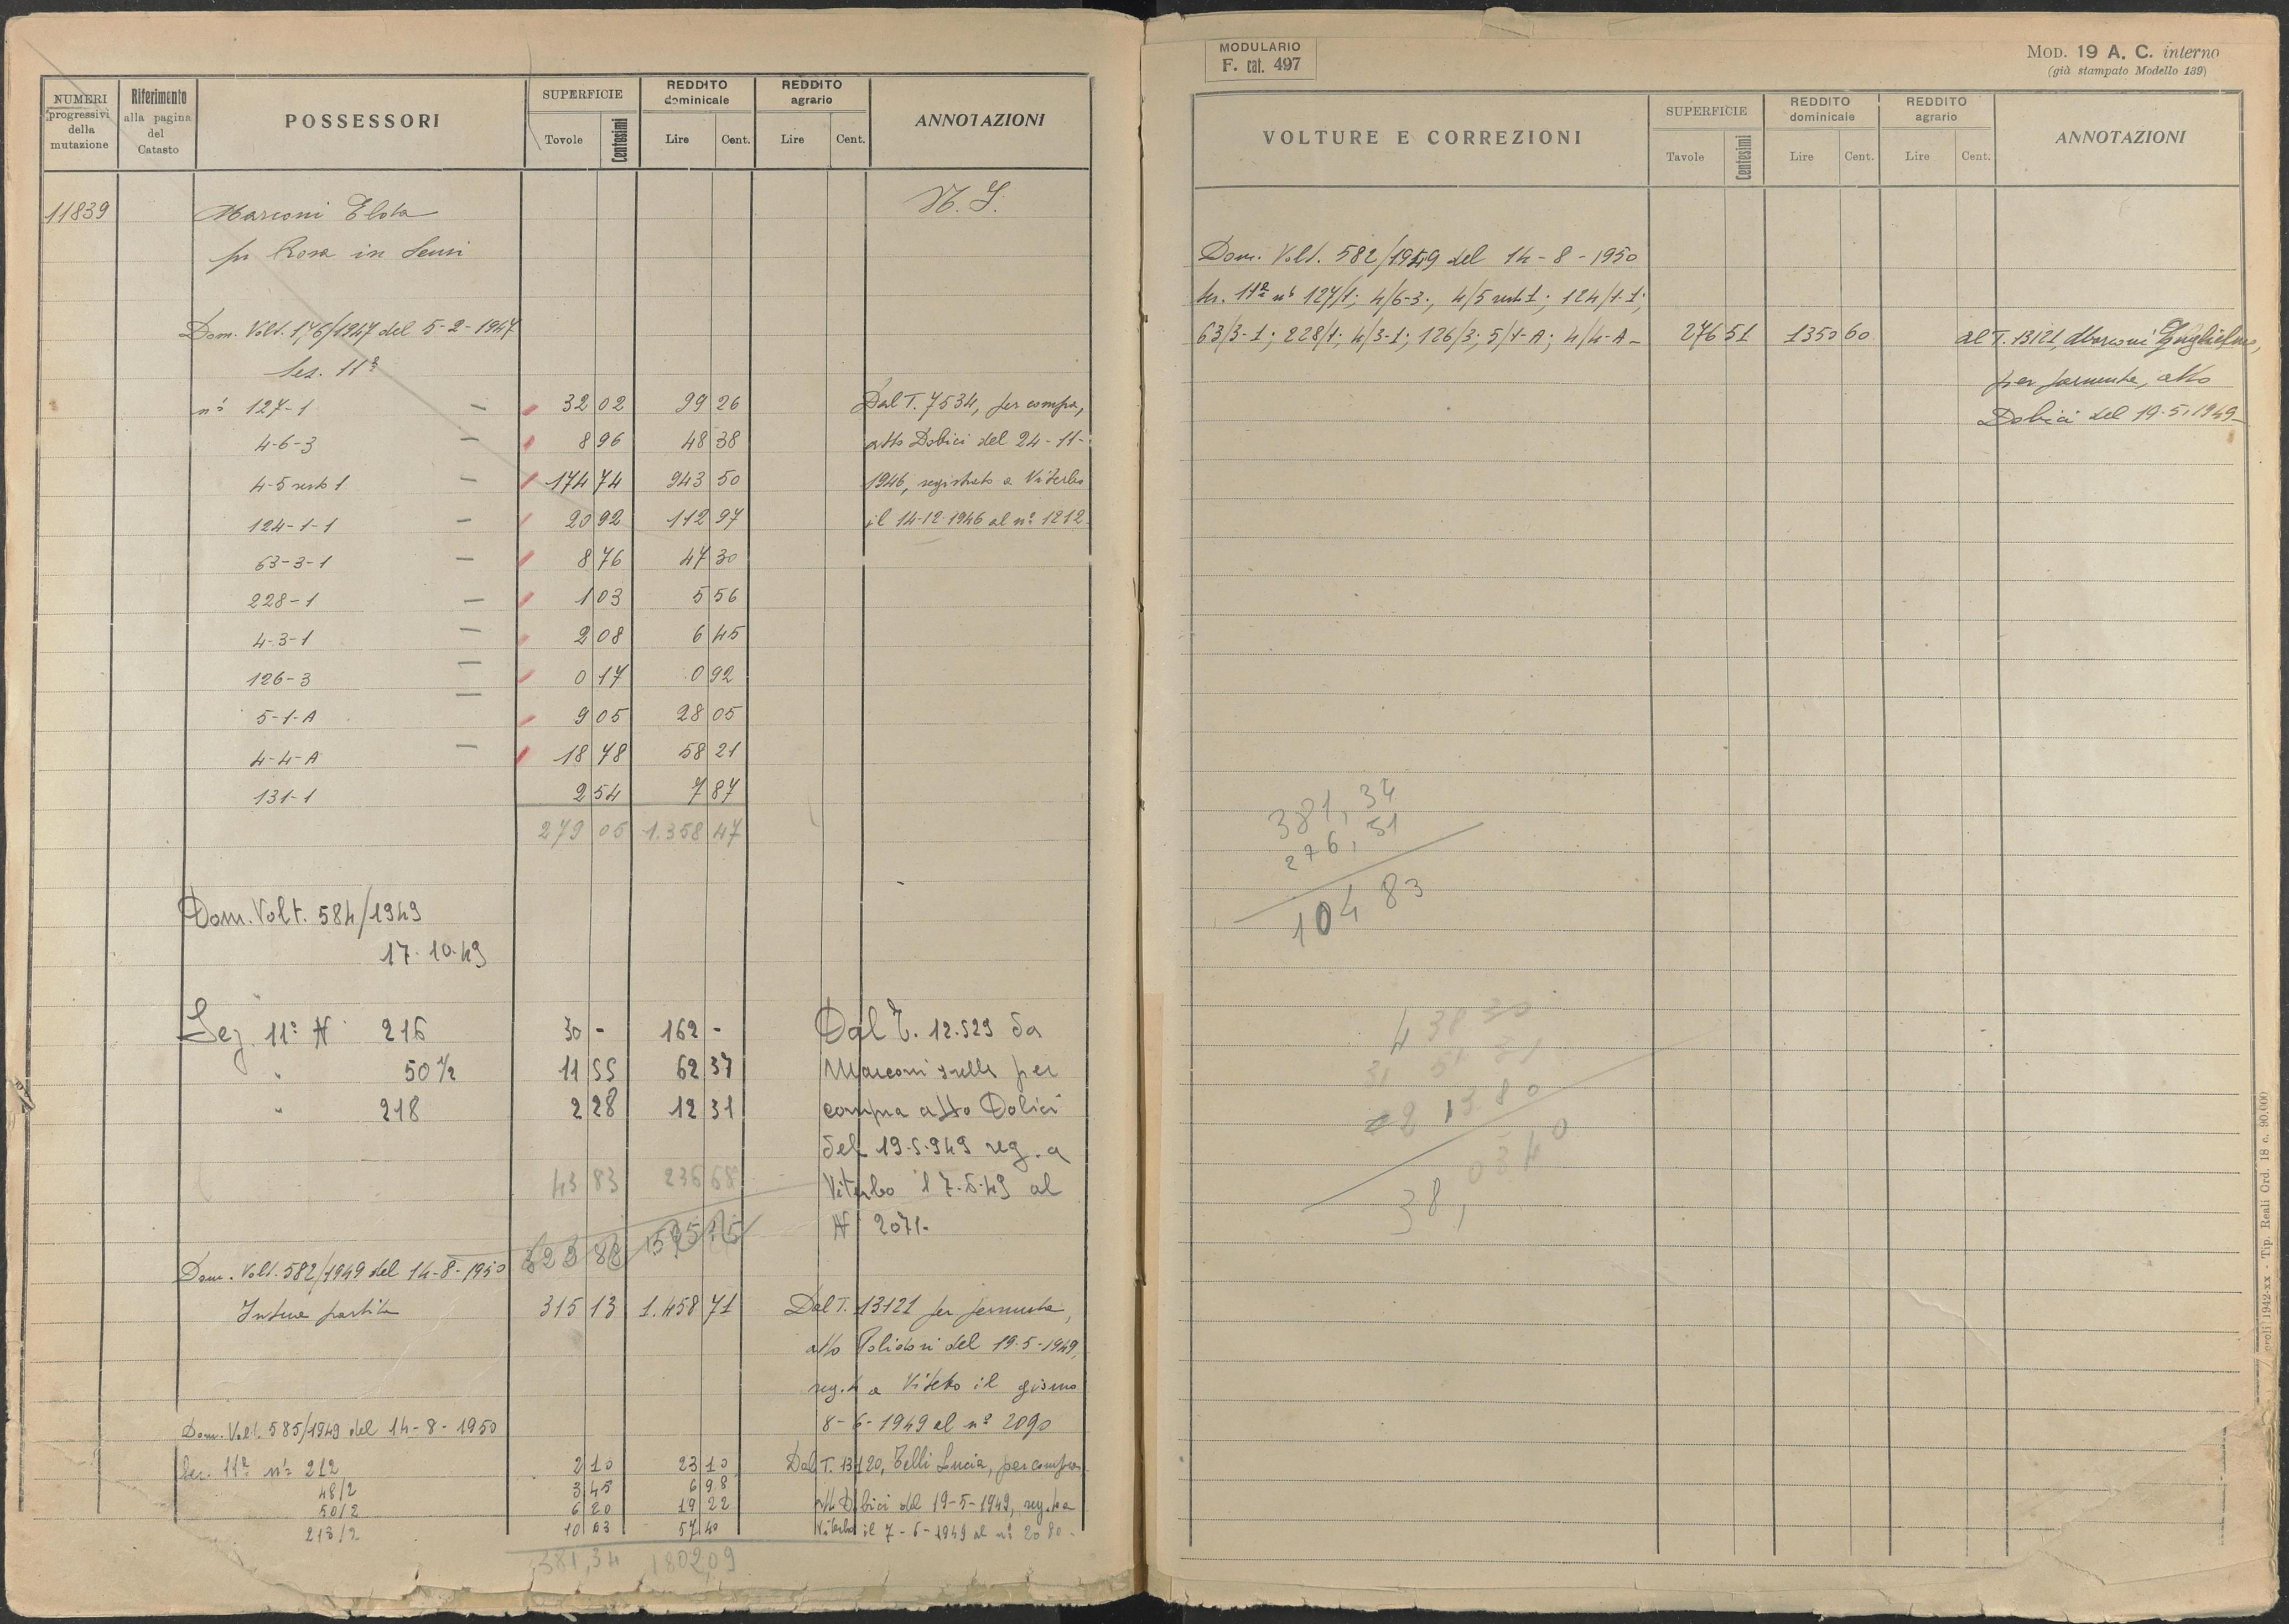 NUMERI progressivi della mutazione | Riferimento alla pagina del Catasto | POSSESSORI | SUPERFICIE Tavole Centesimi | REDDITO dominicale Lire Cent. | REDDITO agrario Lire Cent. | ANNOTAZIONI
11839 Marconi Elda N. I.
Rosa in
Dom. Volt. 176/1947 del 5-2-1947
Sez. 11ª
nº 127-1 — 32 02 99 26 Dal T. 7534, per compra,
4-6-3 — 8 96 48 38 atto Dobici del 24-11-
4-5 resto 1 — 174 74 943 50 1946, registrato a Viterbo
124-1-1 — 20 92 112 97 il 14-12-1946 al nº 1212
63-3-1 — 8 76 47 30
228-1 — 1 03 5 56
4-3-1 — 2 08 6 45
126-3 — 0 17 0 92
5-1-A — 9 05 28 05
4-4-A — 18 78 58 21
131-1 2 54 7 87
279 05 1.358 47
Dom. Volt. 584/1949
17-10-49
Sez. 11ª N 216 30 - 162 - Dal T. 12.529 da
" 50 1/2 11 55 62 37 Marconi per
" 218 2 28 12 31 compra atto Dobici
del 19-5-949 reg. a
43 83 236 68 Viterbo il 7-6-49 al
N 2071-
322 88 1595 15
Dom. Volt. 582/1949 del 14-8-1950
Intera partita 315 13 1.458 71 Dal T. 13121 per permuta,
atto Polidori del 19-5-1949,
reg.to a Viterbo il giorno
8-6-1949 al nº 2090
Dom. Volt. 585/1949 del 14-8-1950
Sez. 11ª nº 212 2 10 23 10 Dal T. 13120, Telli Lucia, per compra
48/2 3 45 6 98
50/2 6 20 19 22 atto Dobici del 19-5-1949, reg.to a
213/2 10 63 57 40 Viterbo il 7-6-1949 al nº 2080-
381,34 1802,09
MODULARIO
F. cat. 497
MOD. 19 A. C. interno
(già stampato Modello 139)
VOLTURE E CORREZIONI | SUPERFICIE Tavole Centesimi | REDDITO dominicale Lire Cent. | REDDITO agrario Lire Cent. | ANNOTAZIONI
Dom. Volt. 582/1949 del 14-8-1950
Sez. 11ª nº 127/1; 4/6-3; 4/5 resto 1; 124/1-1;
63/3-1; 228/1; 4/3-1; 126/3; 5/1-A; 4/4-A- 276 51 1350 60 al T. 13121, Marconi Guglielmo,
per permuta, atto
Dobici del 19-5-1949-
381,34
276,51
104 83
1942-XX - Tip. Reali Ord. 18 c. 90.000